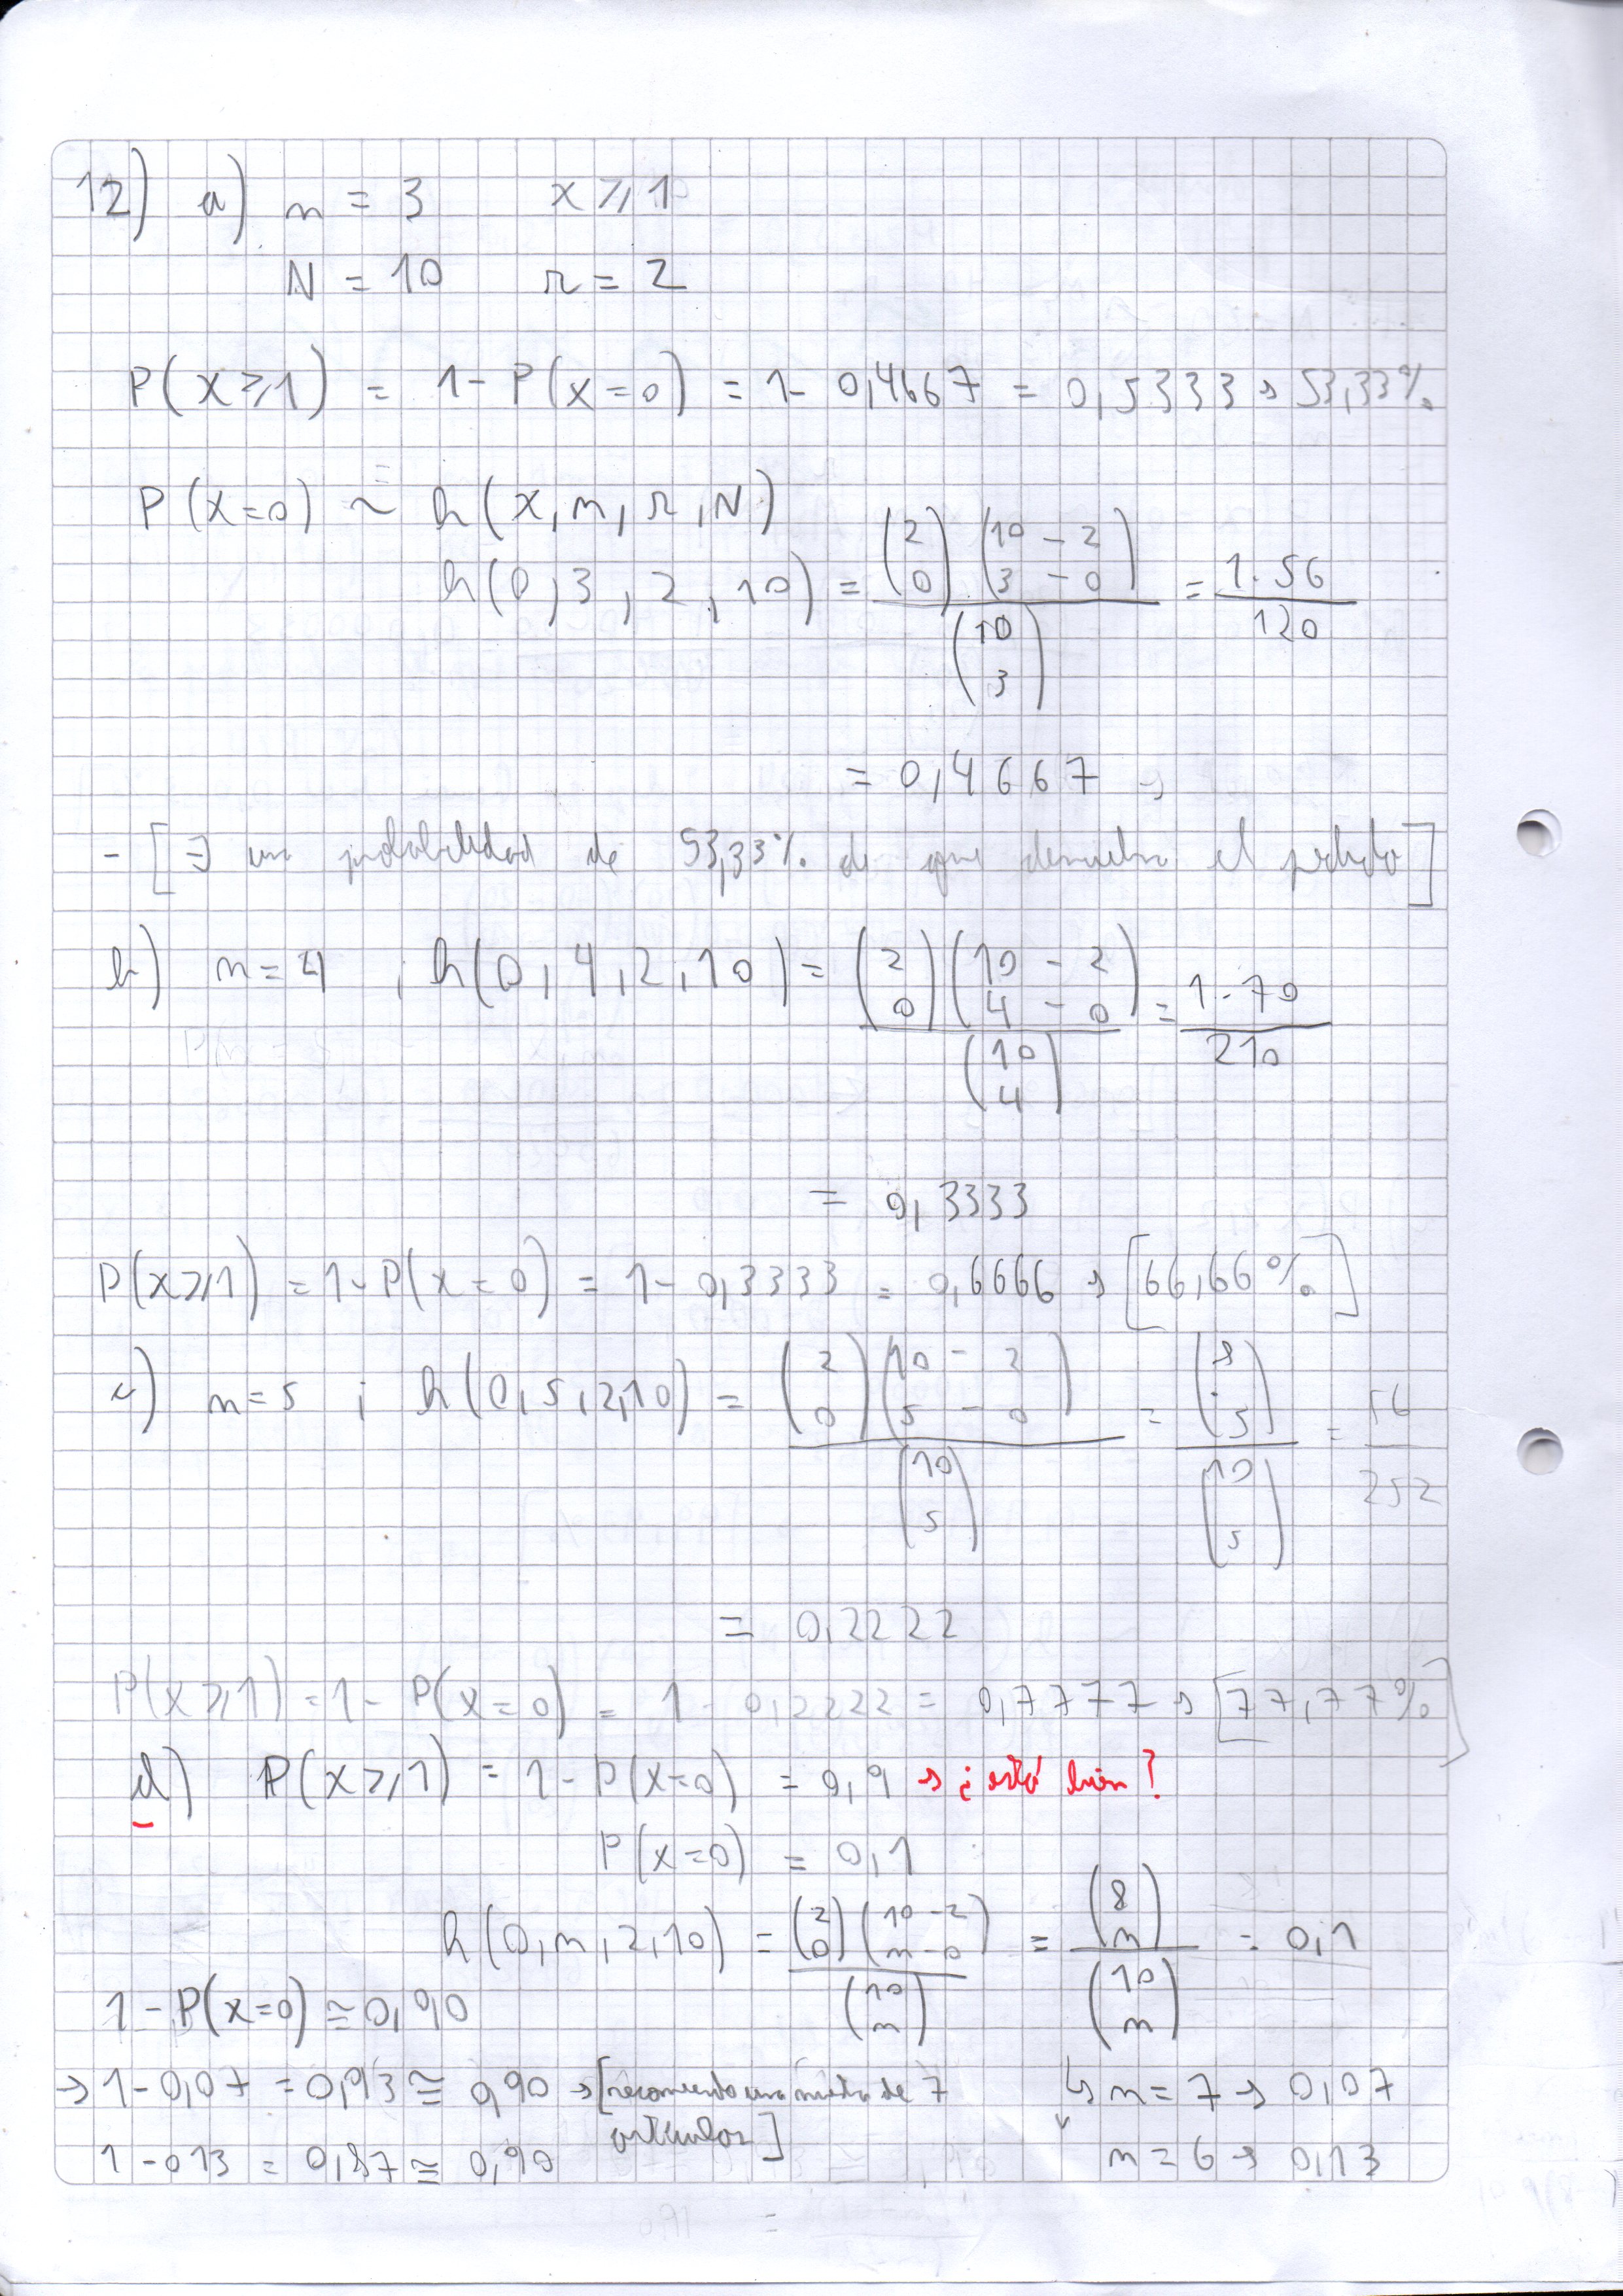 12) a) n = 3 x ⩾ 1
N = 10 r = 2
P(x⩾1) = 1 - P(x=0) = 1 - 0,4667 = 0,5333 → 53,33%
P(x=0) ~ h(x, n, r, N)
h(0, 3, 2, 10) = (2 0) (10 - 2 3 - 0) / (10 3) = 1.56 / 120
= 0,4667 →
- [∃ una probabilidad de 53,33% de que devuelva el pedido]
b) n = 4 ; h(0, 4, 2, 10) = (2 0) (10 - 2 4 - 0) / (10 4) = 1.70 / 210
= 0,3333
P(x⩾1) = 1 - P(x=0) = 1 - 0,3333 = 0,6666 → [66,66%]
c) n = 5 ; h(0, 5, 2, 10) = (2 0) (10 - 2 5 - 0) / (10 5) = (8 5) / (10 5) = 56 / 252
= 0,2222
P(x⩾1) = 1 - P(x=0) = 1 - 0,2222 = 0,7777 → [77,77%]
d) P(x⩾1) = 1 - P(x=0) = 0,9 → ¿está bien?
P(x=0) = 0,1
h(0, n, 2, 10) = (2 0) (10 - 2 n - 0) / (10 n) = (8 n) / (10 n) = 0,1
1 - P(x=0) ≅ 0,90
→ 1 - 0,07 = 0,93 ≅ 0,90 → [recomiendo una de 7 artículos]
↳ n = 7 → 0,07
1 - 013 = 0,87 ≅ 0,90
n = 6 → 0,13